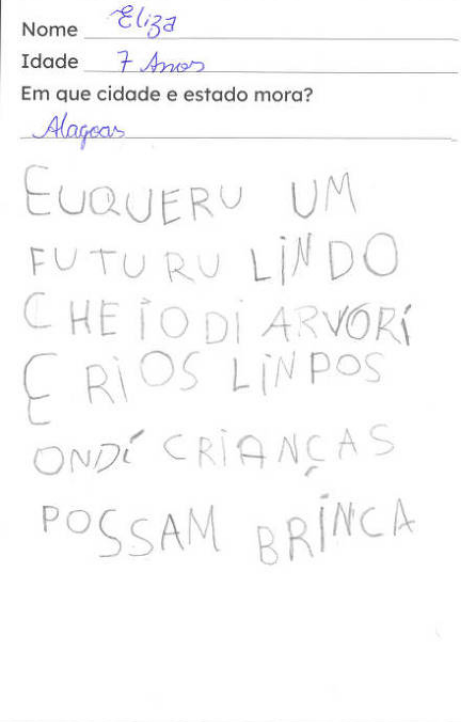 Nome Eliza
Idade 7 Anos
Em que cidade e estado mora?
Alagoas
EUQUERU UM
FUTURU LINDO
CHEIODI ARVORÍ
E RIOS LINPOS
ONDÍ CRIANÇAS
POSSAM BRINCA